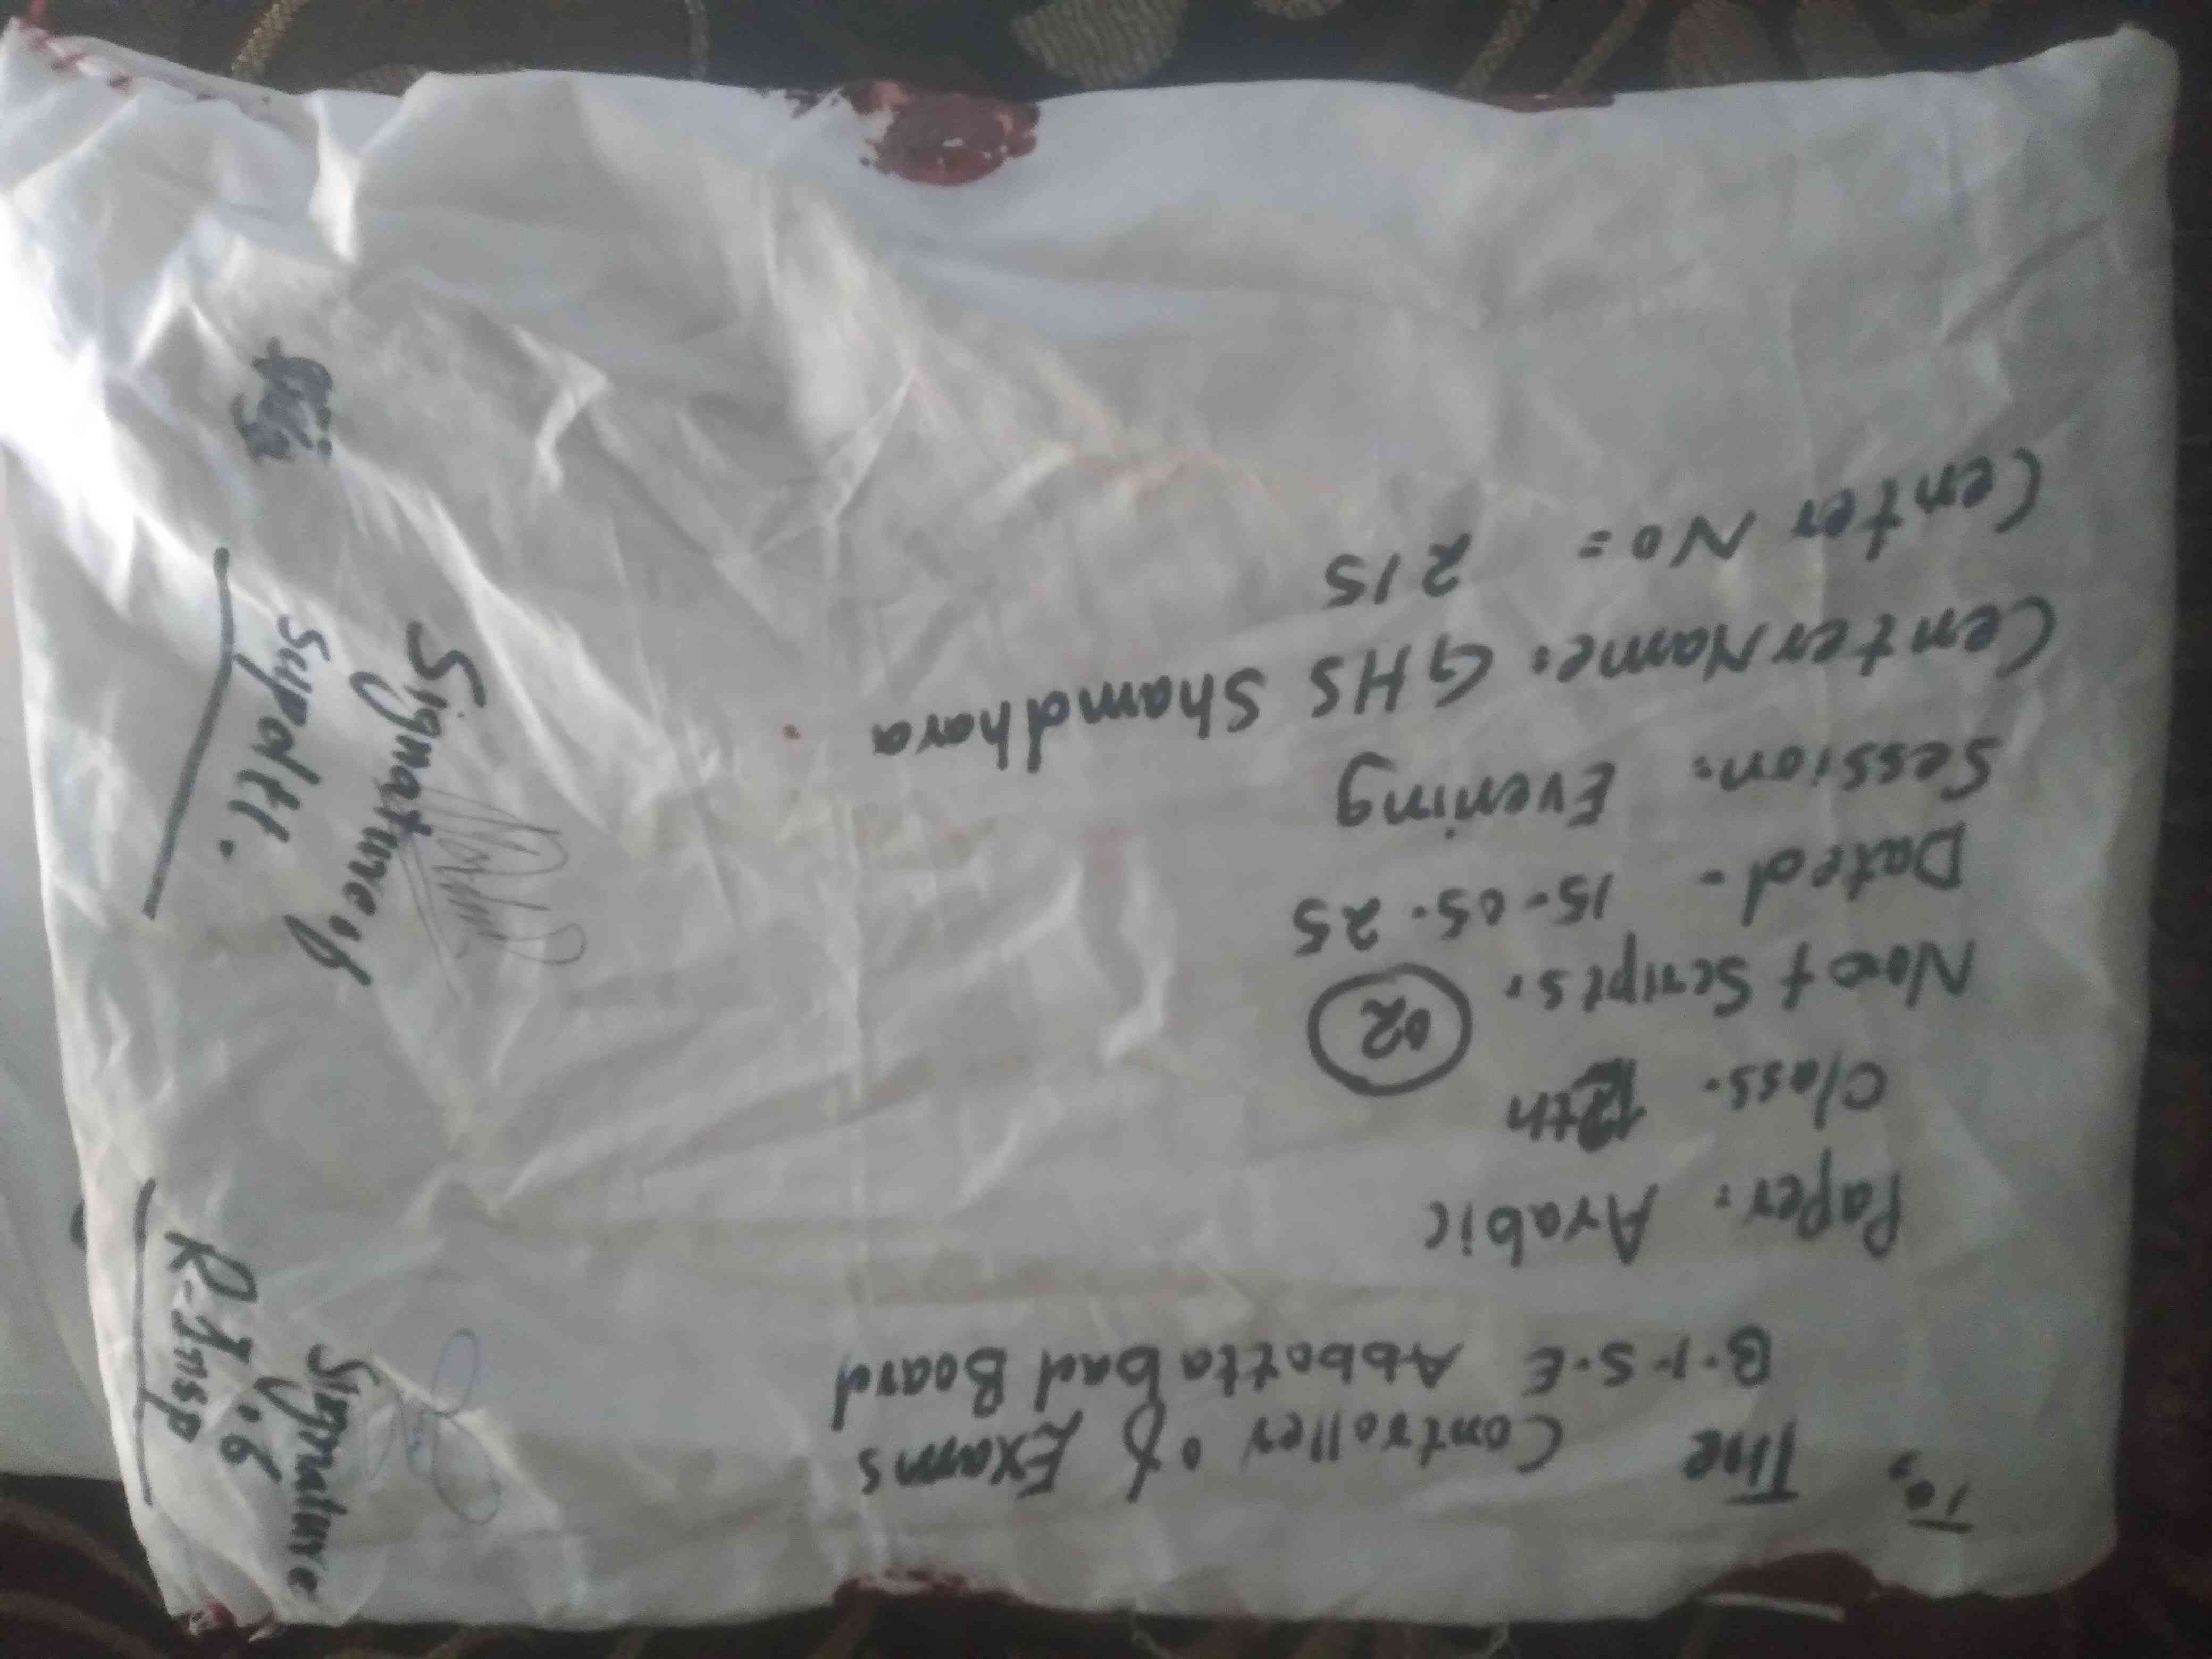 To,
The Controller of Exams
B.I.S.E Abbottabad Board
Paper: Arabic
Class. 12th
No of Scripts. 02
Dated- 15-05-25
Session: Evening
Center Name: GHS Shamdhara
Center No = 215
Signature
R-Insp
Signature of
Supdtt.